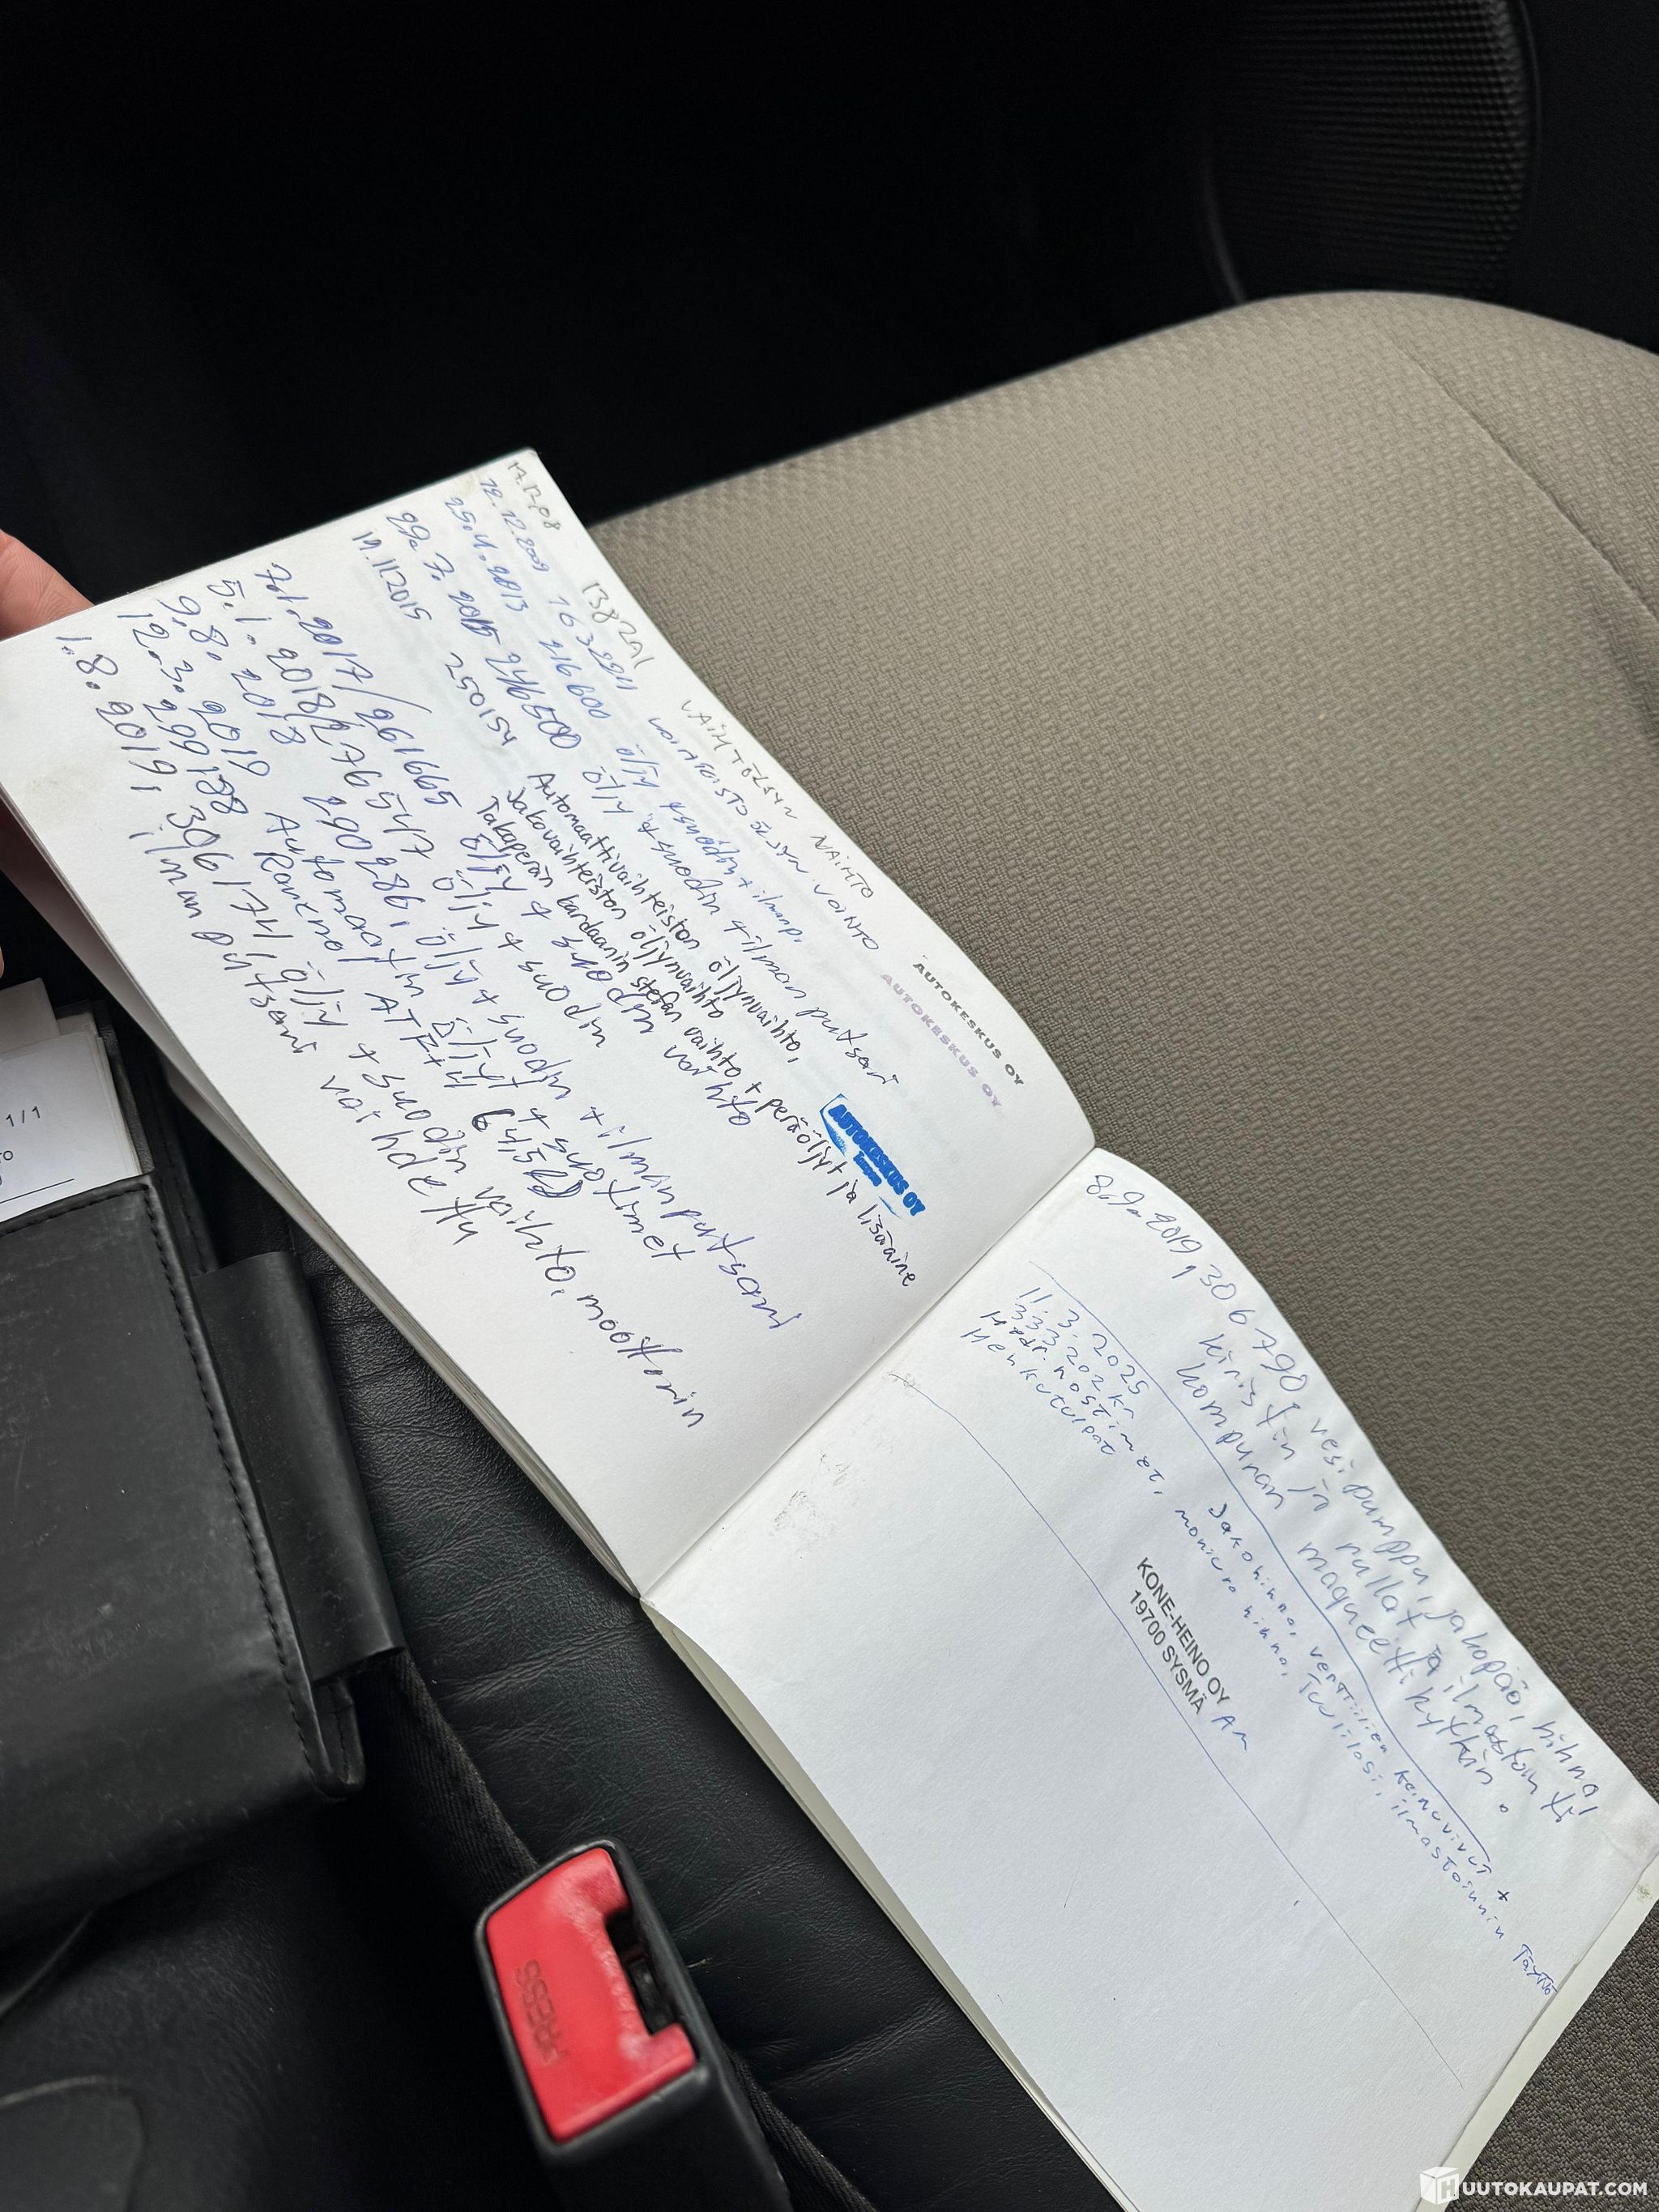 17.12.08 138291 VAIHTÖLJYN VAIHTO AUTOKESKUS OY
12.12.2009 163224 VAIHTEISTOÖLJYN VAIHTO AUTOKESKUS OY
25.4.2013 216600 öljy + suodin + ilmanp.
29.7.2015 246500 öljy + suodin + ilman putsari
11.11.2015 250154 Automaattivaihteiston öljynvaihto,
Jakovaihteiston öljynvaihto
Takaperän kardaanin stefan vaihto + peräöljyt ja lisäaine
AUTOKESKUS OY
7.1.2017/261665 öljy + suodin vaihto
5.1.2018/276547 öljy + suodin
9.8.2018 290286, öljy + suodin + ilmanputsari
12.3.2019 Automaatin öljyt + suotimet
299188 Ravenol ATF+4 6,5 l
1.8.2019, 306174, öljy + suodin vaihto, moottorin
ilman putsari vaihdettu
8.9.2019, 306790, vesipumppu, jakopää, hihna,
kiristin ja rullat ja ilmastointi
kompuran magneettikytkin.
11.3.2025
333202km Jakohihna, venttiilien keinuvivut +
Hydr. nostimet, moniura hihna, Tuulilasi, ilmastoinnin Täyttö
Henkutulpat
KONE-HEINO OY
19700 SYSMÄ
1/1
PRESS
HUUTOKAUPAT.COM